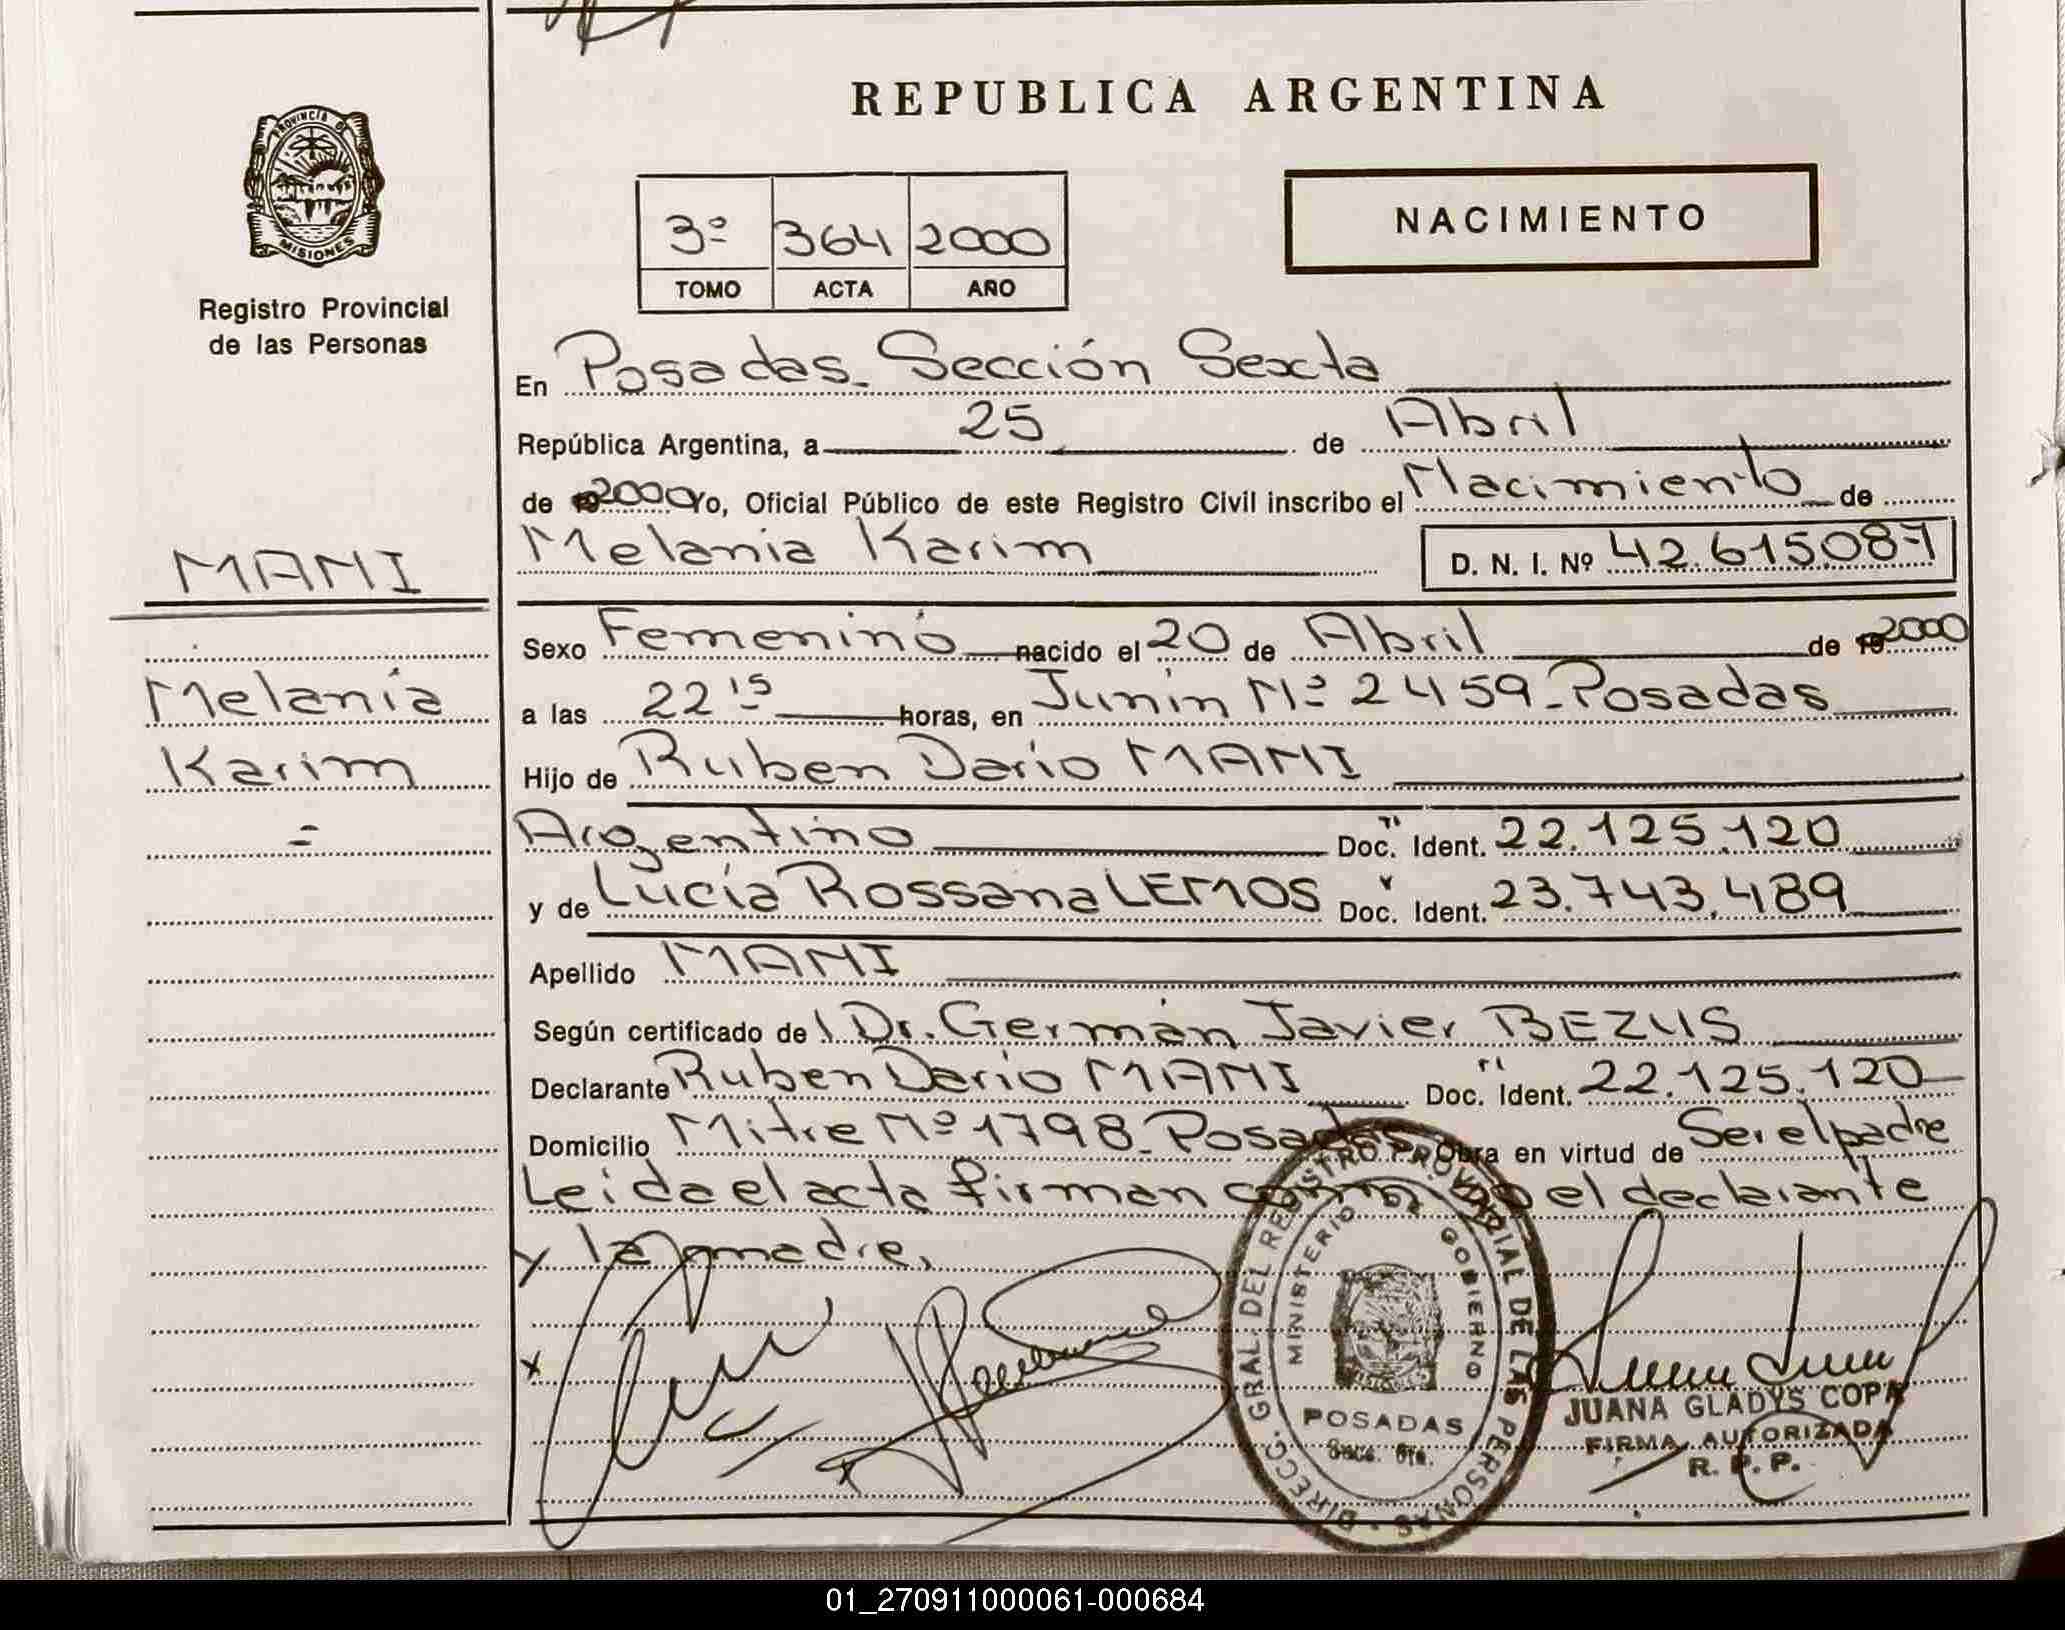 REPUBLICA ARGENTINA
PROVINCIA DE
MISIONES
Registro Provincial
de las Personas
3º 364 2000
TOMO ACTA AÑO
NACIMIENTO
En Posadas. Sección Sexta
República Argentina, a 25 de Abril
de 2000 Yo, Oficial Público de este Registro Civil inscribo el Nacimiento de
Melania Karim D. N. I. Nº 42.615.087
MANI
Melania
Karim
=
Sexo Femenino nacido el 20 de Abril de 19 2000
a las 22 15 horas, en Junín Nº 2459 - Posadas
Hijo de Ruben Dario MANI
Argentino Doc. Ident. 22.125.120
y de Lucía Rossana LEMOS Doc. Ident. 23.743.489
Apellido MANI
Según certificado de Dr. Germán Javier BEZUS
Declarante Ruben Dario MANI Doc. Ident. 22.125.120
Domicilio Mitre Nº 1798 - Posadas Obra en virtud de Ser el padre
Leida el acta firman conmigo el declarante
y la madre,
x
DIRECC. GRAL. DEL REGISTRO PROVINCIAL DE LAS PERSONAS
MINISTERIO DE GOBIERNO
POSADAS
Secc. 6ta.
JUANA GLADYS COPA
FIRMA AUTORIZADA
R. P. P.
01_270911000061-000684